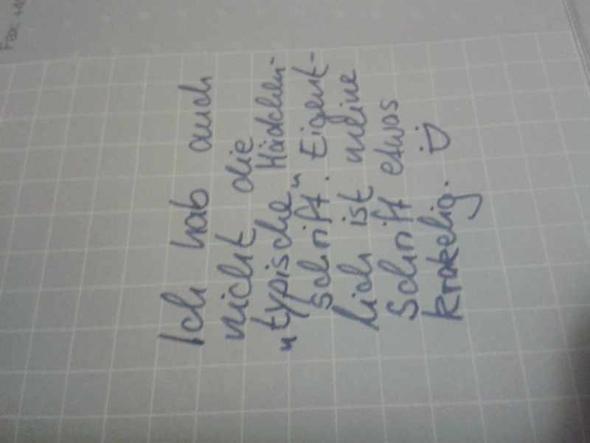 Ich hab auch
nicht die
"typische" Mädchen-
schrift. Eigent-
lich ist meine
Schrift etwas
krakelig. :)
Fax: